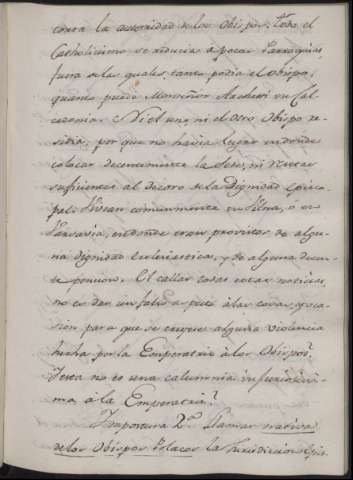 contra la autoridad de los Obispos, todo el
Catholicismo se reducia a pocas Parroquias,
fuera de las quales, tanto podia el Obispo,
quanto puede Monseñor Archeti en
Ni el uno, ni el otro Obispo re-
sidia; por que no havia lugar en donde
colocar decentemente la Sede, ni Rentas
suficientes al decoro de la Dignidad Episco-
pal: Vivian comunmente en Vilna, ó en
Varsavia, en donde eran provistos de algu-
na dignidad ecclesiastica, y de alguna decen-
te pension. El callar todas estas noticias,
no es dar un falso a peto á las cosas, y oca-
sion, para que se creyese alguna violencia
hecha por la Emperatriz á los Obispos?
Y esta no es una calumnia injuriosissi-
ma á la Emperatriz?
Impostura 2.ª Llamar nativa
de los Obispos Polacos la Jurisdiccion Epis-